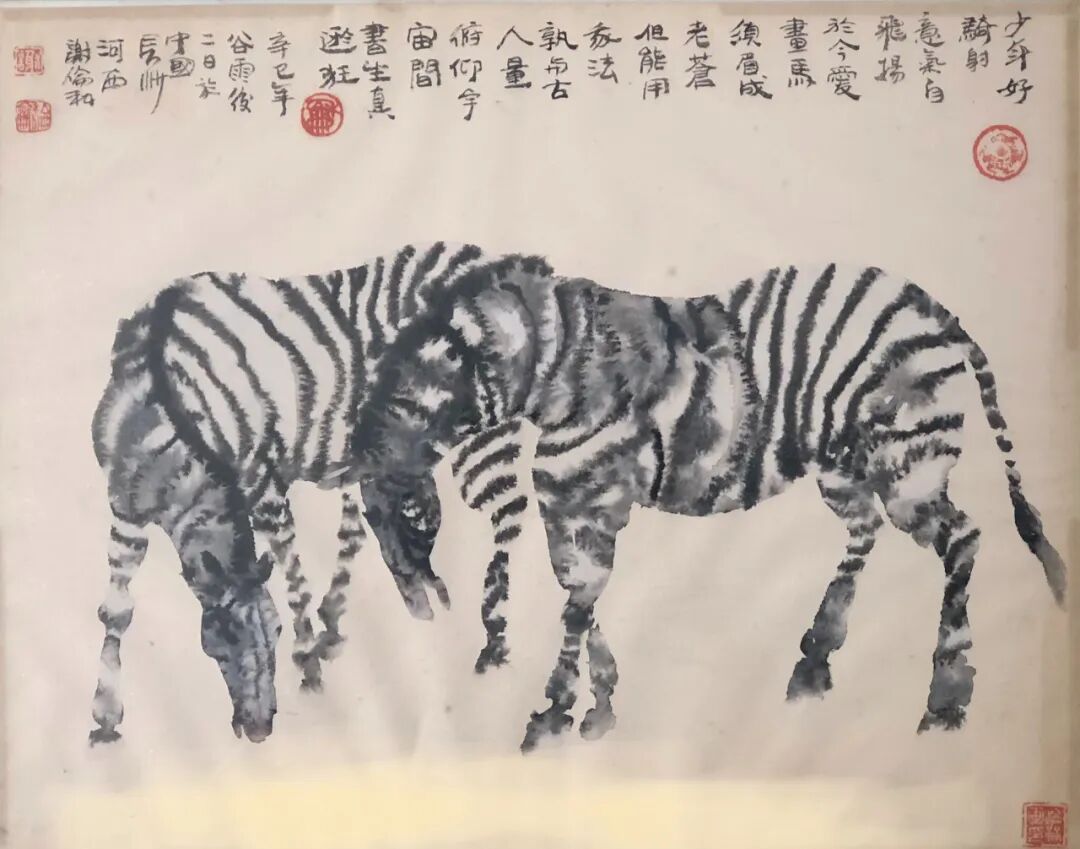 少年好
騎射
意氣自
飛揚
於今愛
畫馬
須眉成
老蒼
但能用
我法
孰与古
人量
俯仰宇
宙間
書生真
遊狂
辛巳年
谷雨後
二日於
中國
長洲
河西
謝倫和